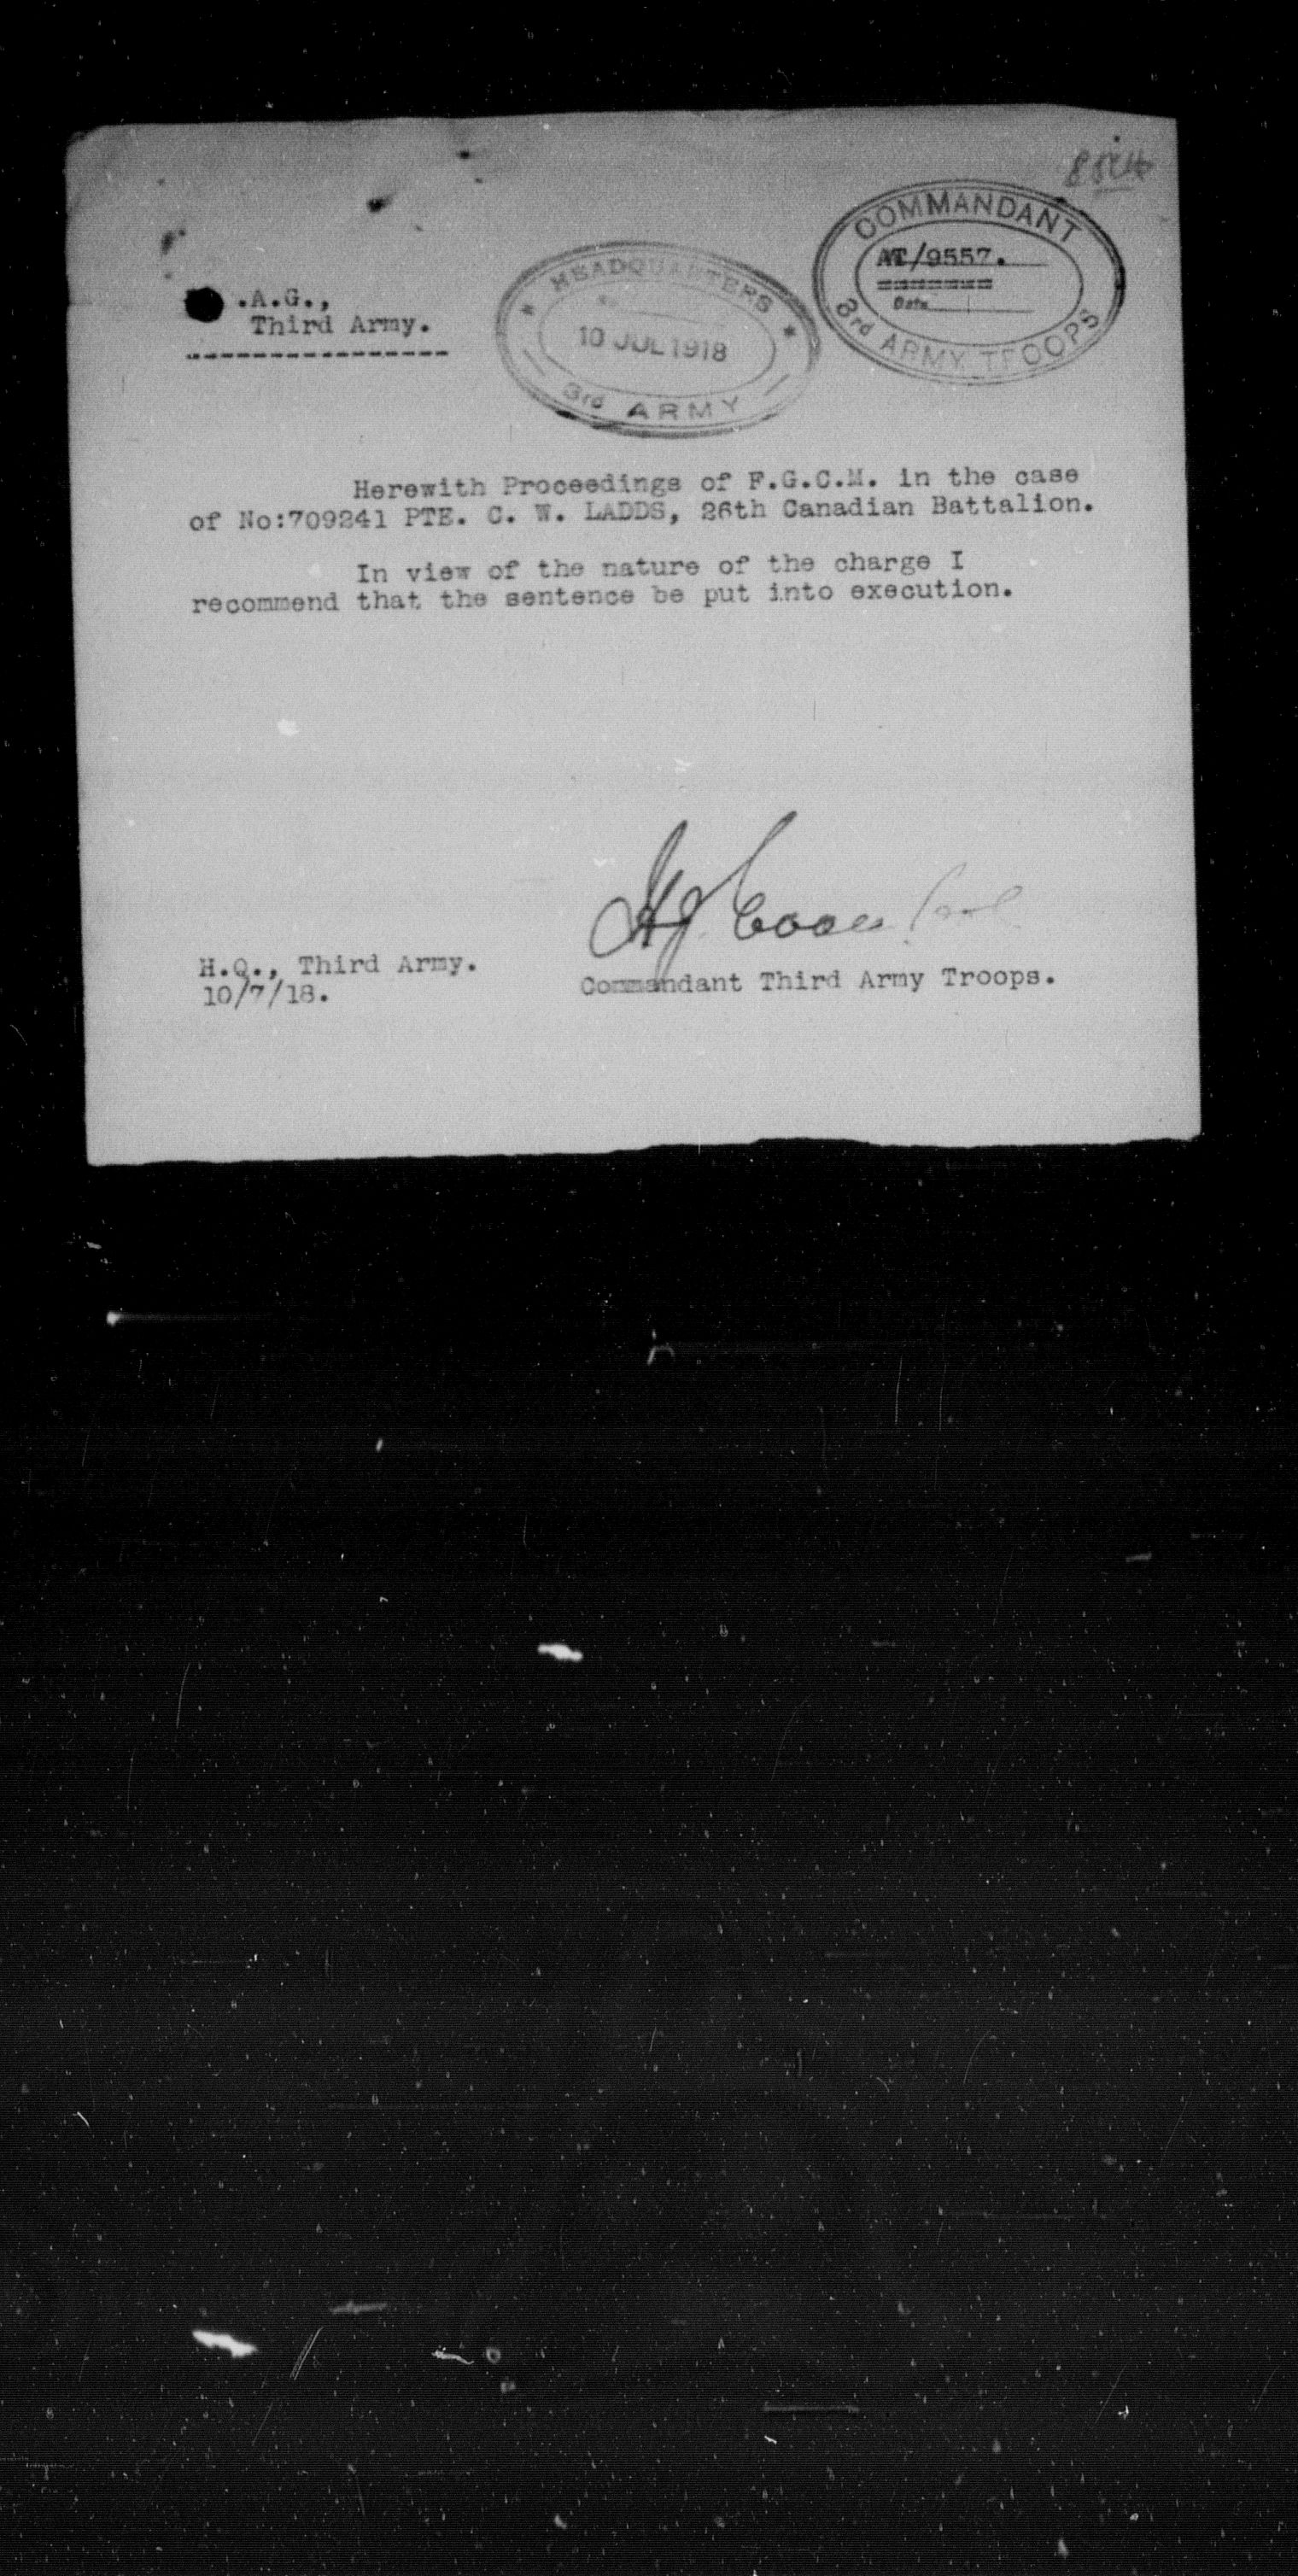 COMMANDANT
AT/9557.
Date
3rd ARMY TROOPS
HEADQUARTERS
10 JUL 1918
3rd ARMY
.A.G.,
Third Army.
Herewith Proceedings of F.G.C.M. in the case
of No:709241 PTE. C. W. LADDS, 26th Canadian Battalion.
In view of the nature of the charge I
recommend that the sentence be put into execution.
H.Q., Third Army.
10/7/18.
Commandant Third Army Troops.